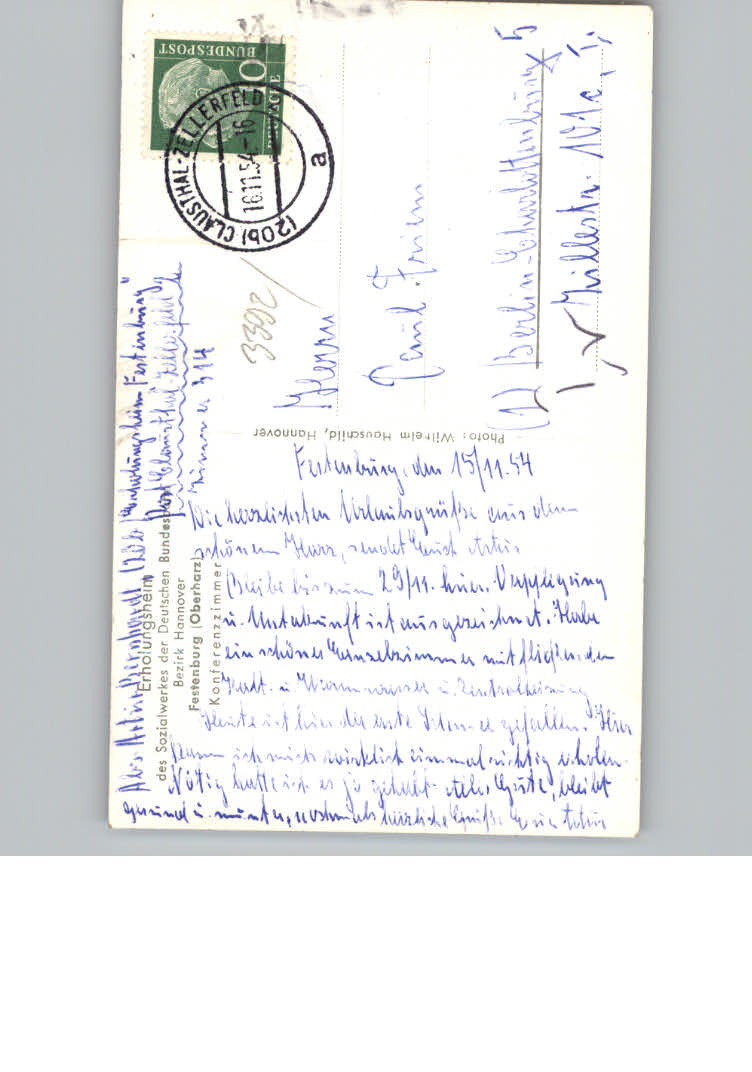 DEUTSCHE
BUNDESPOST
10
(20b) CLAUSTHAL-ZELLERFELD
16.11.54-16
a
3392
Herrn
Paul Friem
(1) Berlin-Charlottenburg 5
101a, I
Photo: Wilhelm Hauschild, Hannover
Abs. Artur Bernhardt (20b) Erholungsheim "Festenburg"
Post Clausthal-Zellerfeld
Zimmer 314
Erholungsheim
des Sozialwerkes der Deutschen Bundespost
Bezirk Hannover
Festenburg (Oberharz)
Konferenzzimmer
Festenburg, den 15/11.54
Die herzlichsten Urlaubsgrüße aus dem
schönen Harz, sendet Euch Artur
Bleibe bis zum 29/11. hier. Verpflegung
u. Unterkunft ist ausgezeichnet. Habe
ein schönes Einzelzimmer mit fließendem
Kalt- u. Warmwasser u. Zentralheizung
Heute ist hier der erste Schnee gefallen. Hier
kann ich mich wirklich einmal richtig erholen.
Nötig hatte ich es ja gehabt. Alles Gute, bleibt
gesund u. munter, nochmals herzliche Grüße Euer Artur